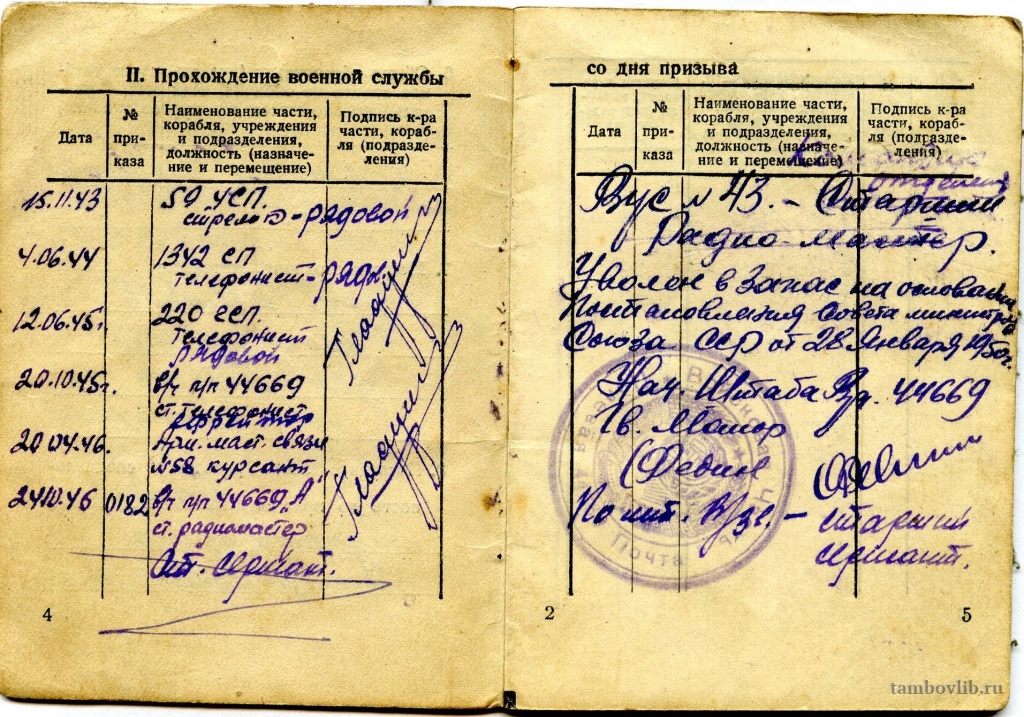 II. Прохождение военной службы
Дата
№ при- каза
Наименование части, корабля, учреждения и подразделения, должность (назначе- ние и перемещение)
Подпись к-ра части, кораб- ля (подразде- ления)
15.11.43
59 УСП
стрелок-рядовой
4.06.44
1342 СП
телефонист-рядов.
12.06.45г.
220 гсп.
телефонист
рядовой
20.10.45г.
в/ч п/п 44669
ст. телефонист
ефрейтор
20.04.46.
Арм. маст. связи
№58 курсант
24.10.46
0182
в/ч п/п 44669 "А"
ст. радиомастер
Ст. сержант.
4
со дня призыва
Дата
№ при- каза
Наименование части, корабля, учреждения и подразделения, должность (назначе- ние и перемещение)
Подпись к-ра части, кораб- ля (подразде- ления)
отделения
Вус № 43. - Старший
Радио-мастер.
Уволен в запас на основании
Постановления Совета министров
Союза ССР от 28 Января 1950г.
Нач. Штаба 44669
Гв. Майор
(Федин
По шт. - старший
сержант.
Почта
2
5
tambovlib.ru